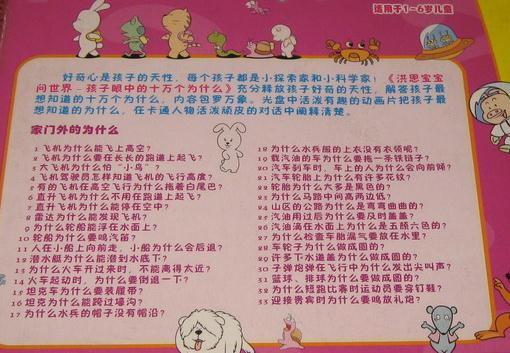 适用于1~6岁儿童
好奇心是孩子的天性，每个孩子都是小探索家和小科学家！《洪恩宝宝
问世界－孩子眼中的十万个为什么》充分释放孩子好奇的天性，解答孩子最
想知道的十万个为什么，内容包罗万象。光盘中活泼有趣的动画片把孩子最
想知道的为什么，在卡通人物活泼顽皮的对话中阐释清楚。
家门外的为什么
1 飞机为什么能飞上高空？
2 飞机为什么要在长长的跑道上起飞？
3 大飞机为什么怕“小鸟”？
4 飞机驾驶员怎样知道飞机的飞行高度？
5 有的飞机在高空飞行为什么拖着白尾巴？
6 直升飞机为什么不用在跑道上起飞？
7 直升飞机为什么能停在空中？
8 雷达为什么能发现飞机？
9 为什么轮船能浮在水面上？
10 轮船为什么要鸣汽笛？
11 人在小船上向前走，小船为什么会后退？
12 潜水艇为什么能潜到水底下？
13 为什么火车开过来时，不能离得太近？
14 火车起动时，为什么要倒退一下？
15 坦克车为什么要装履带？
16 坦克为什么能跨过壕沟？
17 为什么水兵的帽子没有帽沿？
18 为什么水兵服的上衣没有衣领呢？
19 载汽油的车为什么要拖一条铁链子？
20 汽车刹车时，车上的人为什么会向前倾？
21 汽车轮胎上为什么有许多花纹？
22 轮胎为什么大多是黑色的？
23 为什么马路中间高两边低？
24 山区的公路为什么是弯弯曲曲的？
25 汽油用过后为什么要及时盖盖？
26 汽油滴在水面上为什么是五颜六色的？
27 为什么检查车胎漏气要放在水里？
28 车轮子为什么做成圆的？
29 许多下水道盖为什么做成圆的？
30 子弹炮弹在飞行中为什么发出尖叫声？
31 篮球、排球为什么要做成圆的？
32 为什么短跑比赛时运动员要穿钉鞋？
33 迎接贵宾时为什么要鸣放礼炮？